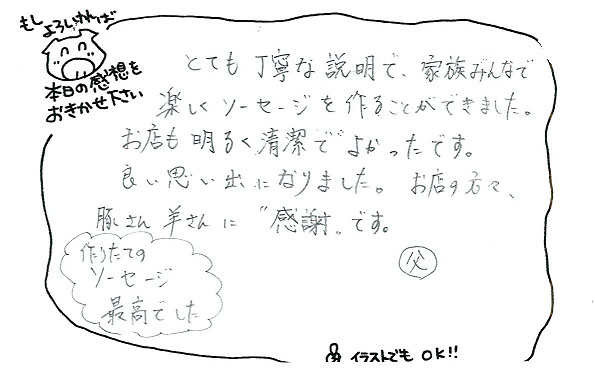 もしよろしければ
本日の感想を
おきかせ下さい
とても丁寧な説明で、家族みんなで
楽しくソーセージを作ることができました。
お店も明るく清潔でよかったです。
良い思い出になりました。お店の方々、
豚さん羊さんに〝感謝〟です。
父
作りたての
ソーセージ
最高でした
イラストでも OK!!